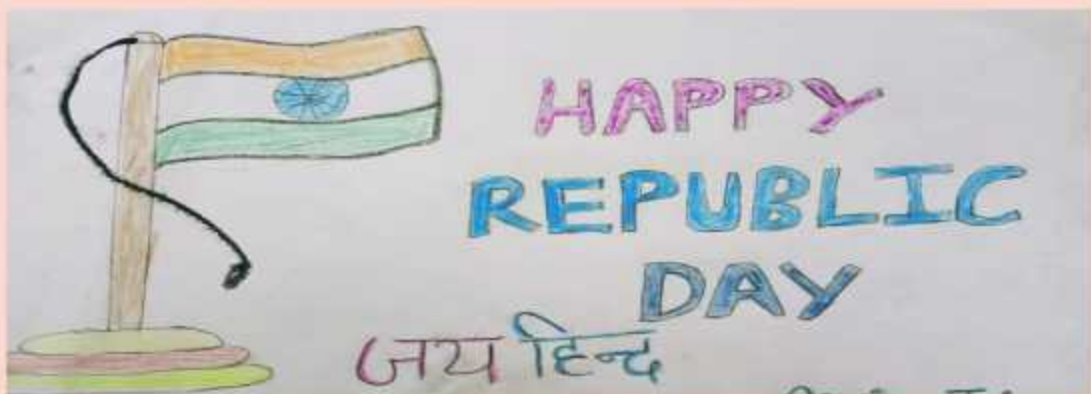 HAPPY
REPUBLIC
DAY
जय हिन्द